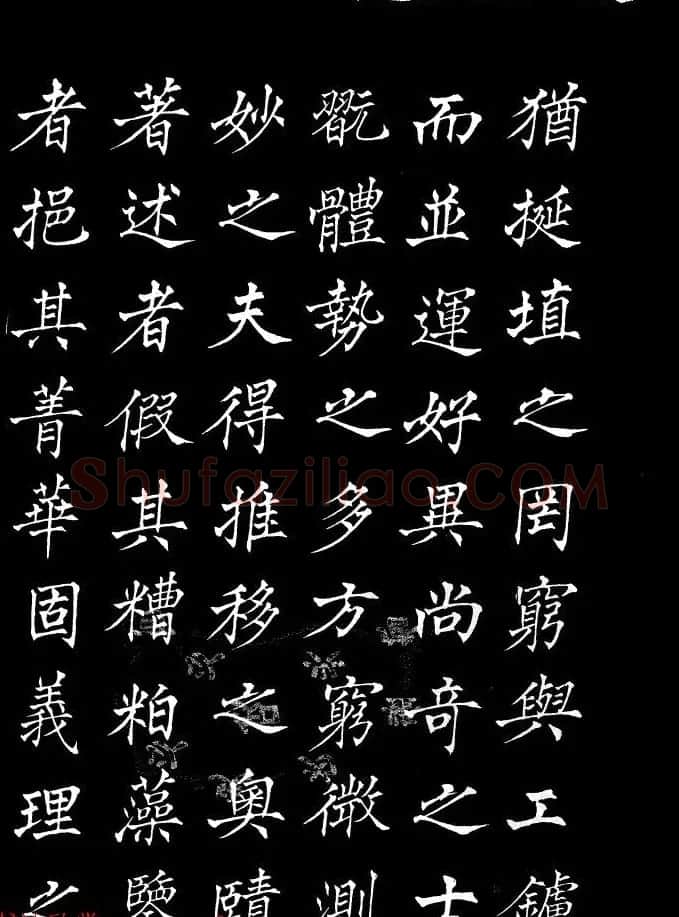 猶挻埴之罔窮與工鑪
而並運好異尚奇之士
翫體勢之多方窮微測
妙之夫得推移之奧賾
著述者假其糟粕藻鑒
者挹其菁華固義理之
Shufaziliao.COM